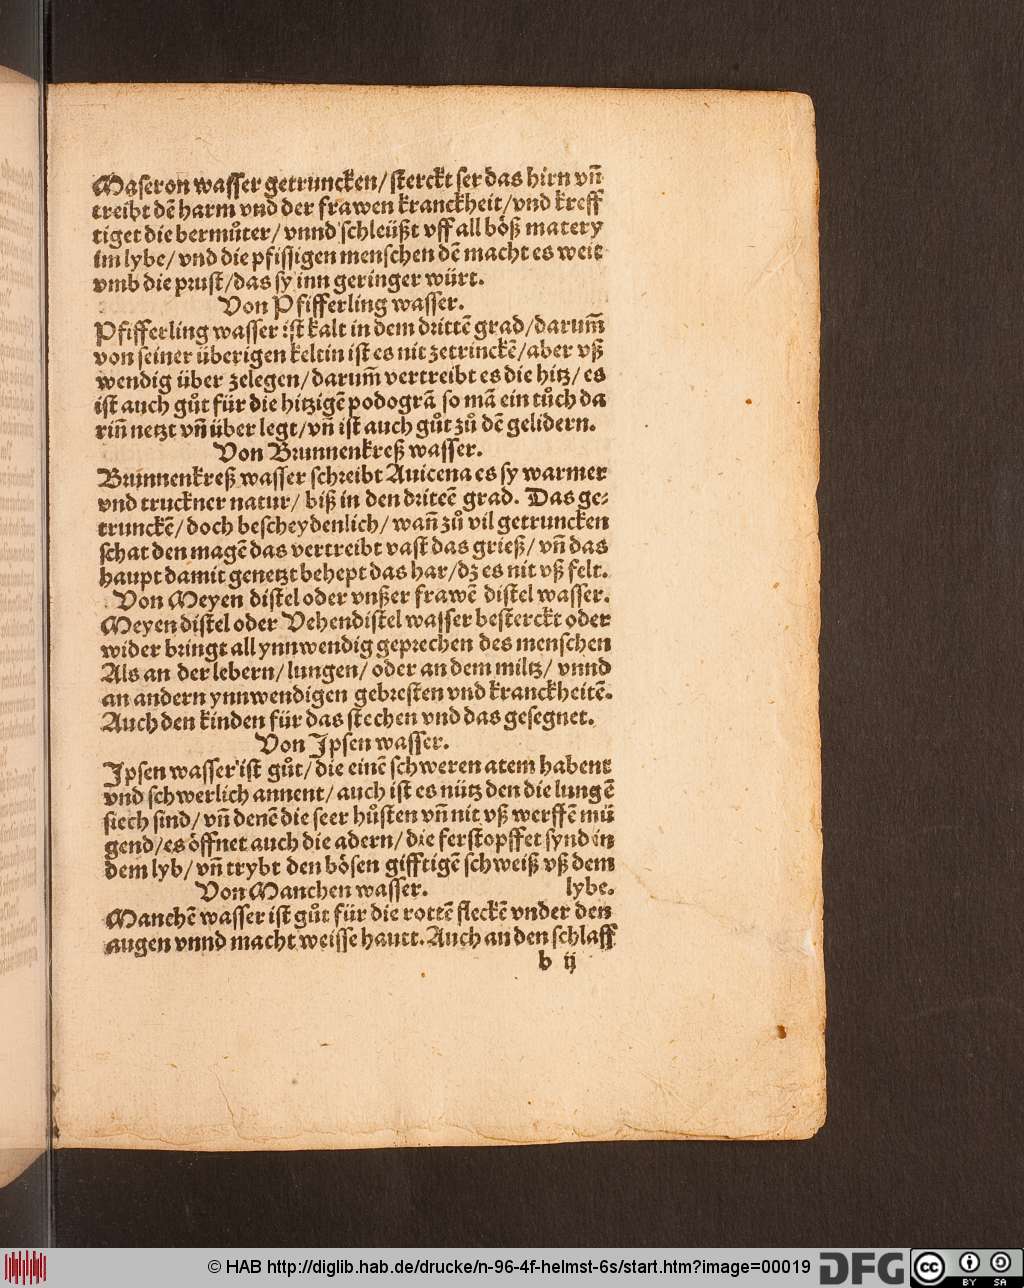 Maseron wasser getruncken/ sterckt ser das hirn vñ
treibt dē harm vnd der frawen kranckheit/vnd kreff
tiget die bermůter/ vnnd schleüßt vff all böß matery
im lybe/ vnd die pfissigen menschen dē macht es weit
vmb die prust/das sy inn geringer würt.
Von Pfifferling wasser.
Pfifferling wasser ist kalt in dem drittē grad/darum̄
von seiner überigen keltin ist es nit zetrinckē/aber vß
wendig über zelegen/darum̄ vertreibt es die hitz/ es
ist auch gůt für die hitzigē podogrā so mā ein tůch da
rin̄ netzt vn̄ über legt/vn̄ ist auch gůt zů dē gelidern.
Von Brunnenkreß wasser.
Brunnenkreß wasser schreibt Auicena es sy warmer
vnd truckner natur/ biß in den dritē grad. Das ge⸗
trunckē/ doch bescheydenlich/ wan̄ zů vil getruncken
schat den magē das vertreibt vast das grieß/ vn̄ das
haupt damit genetzt behept das har/dz es nit vß felt.
Von Meyen distel oder vnßer frawē distel wasser.
Meyen distel oder Vehendistel wasser besterckt oder
wider bringt all ynnwendig geprechen des menschen
Als an der lebern/ lungen/ oder an dem miltz/ vnnd
an andern ynnwendigen gebresten vnd kranckheitē.
Auch den kinden für das stechen vnd das gesegnet.
Von Ipsen wasser.
Ipsen wasser ist gůt/ die einē schweren atem habent
vnd schwerlich annent/ auch ist es nütz den die lungē
siech sind/ vn̄ denē die seer hůsten vn̄ nit vß werffē mü
gend/es öffnet auch die adern/ die ferstopffet synd in
dem lyb/ vn̄ trybt den bösen gifftigē schweiß vß dem
Von Manchen wasser. lybe.
Manchē wasser ist gůt für die rottē fleckē vnder den
augen vnnd macht weisse hautt. Auch an den schlaff
b ij
© HAB http://diglib.hab.de/drucke/n-96-4f-helmst-6s/start.htm?image=00019 DFG cc BY SA